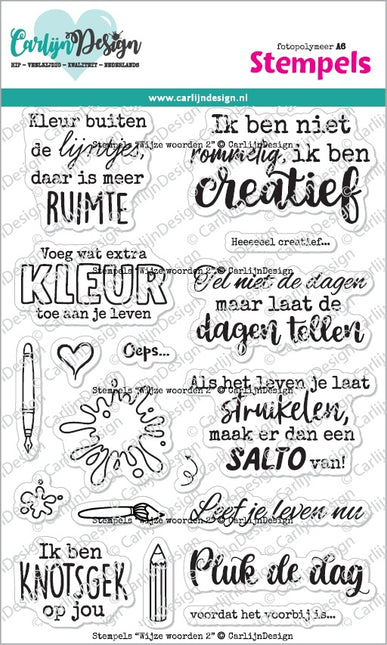 CarlijnDesign
HIP - VEELZIJDIG - KWALITEIT - NEDERLANDS
fotopolymeer A6
Stempels
www.carlijndesign.nl
Kleur buiten
de lijntjes,
daar is meer
RUIMTE
Ik ben niet
rommelig, ik ben
creatief
Stempels "Wijze woorden 2" © CarlijnDesign
Heeeeeel creatief...
Voeg wat extra
KLEUR
toe aan je leven
Tel niet de dagen
maar laat de
dagen tellen
Stempels "Wijze woorden 2" © CarlijnDesign
Oeps...
Als het leven je laat
struikelen,
maak er dan een
SALTO van!
Stempels "Wijze woorden 2" © CarlijnDesign
Leef je leven nu
Stempels "Wijze woorden 2" © CarlijnDesign
Ik ben
KNOTSGEK
op jou
Pluk de dag
voordat het voorbij is...
Stempels "Wijze woorden 2" © CarlijnDesign